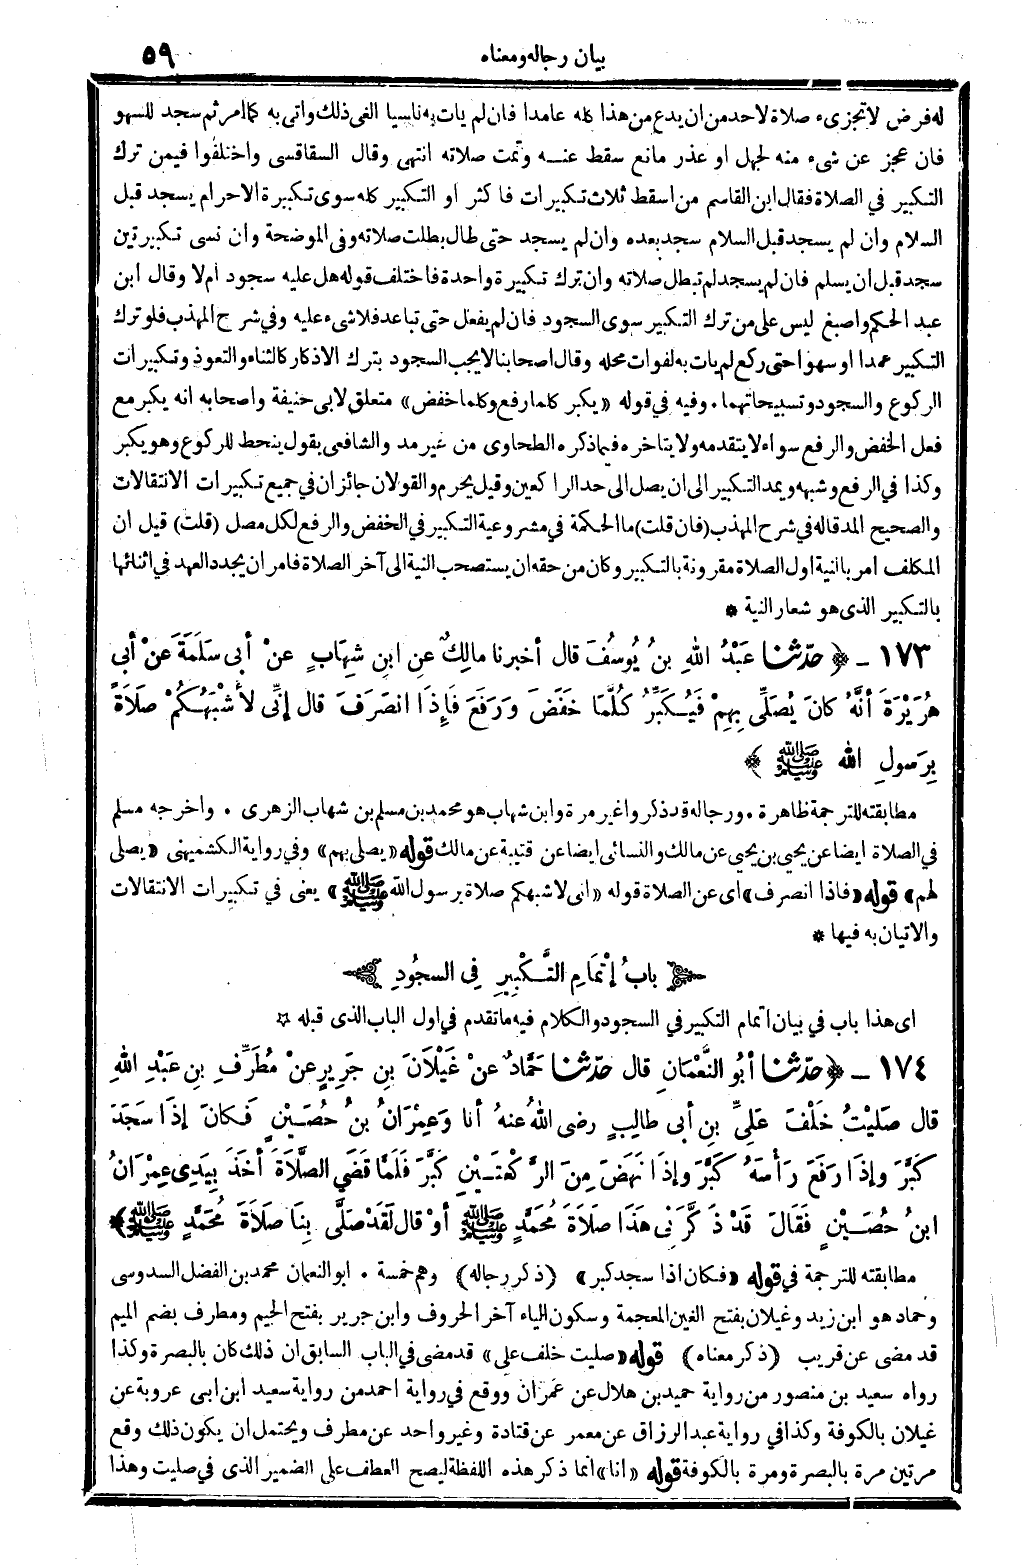 بيان رجاله ومعناه
٥٩
له فرض لا تجزىء صلاة لاحد من ان يدع من هذا كله عامدا فان لم يات به ناسيا الغى ذلك واتى به كما امر ثم سجد للسهو
فان عجز عن شىء منه لجهل او عذر مانع سقط عنه وتمت صلاته انتهى وقال السقاقسى واختلفوا فيمن ترك
التكبير في الصلاة فقال ابن القاسم من اسقط ثلاث تكبيرات فاكثر او التكبير كله سوى تكبيرة الاحرام يسجد قبل
السلام وان لم يسجد قبل السلام سجد بعده وان لم يسجد حتى طال بطلت صلاته وفى الموضحة وان نسى تكبيرتين
سجد قبل أن يسلم فان لم يسجد لم تبطل صلاته وان ترك تكبيرة واحدة فاختلف قوله هل عليه سجود أم لا وقال ابن
عبد الحكم واصبغ ليس على من ترك التكبير سوى السجود فان لم يفعل حتى تباعد فلا شىء عليه وفي شرح المهذب فلو ترك
التكبير عمدا او سهوا حتى ركع لم يات به لفوات محله وقال اصحابنا لا يجب السجود بترك الاذكار كالثناء والتعوذ وتكبيرات
الركوع والسجود وتسبيحاتهما . وفيه في قوله «يكبر كلما رفع وكلما خفض» متعلق لابى حنيفة واصحابه انه يكبر مع
فعل الخفض والرفع سواء لا يتقدمه ولا يتاخره فيما ذكره الطحاوى من غير مد والشافعى بقول ينحط للركوع وهو يكبر
وكذا في الرفع وشبهه ويمد التكبير الى ان يصل الى حد الراكعين وقيل يحرم والقولان جائزان في جميع تكبيرات الانتقالات
والصحيح المد قاله في شرح المهذب (فان قلت) ما الحكمة في مشروعية التكبير في الخفض والرفع لكل مصل (قلت) قيل ان
المكلف امر بالنية اول الصلاة مقرونة بالتكبير وكان من حقه ان يستصحب النية الى آخر الصلاة فامر ان يجدد العهد في اثنائها
بالتكبير الذى هو شعار النية *
١٧٣ - ﴿ حدّثنا عَبْدُ اللهِ بنُ يُوسُفَ قال أخبرنا مالِكٌ عنِ ابنِ شِهَابٍ عنْ أبى سَلَمَةَ عنْ أبى
هُرَيْرَةَ أنَّهُ كانَ يُصَلِّى بِهِمْ فَيُكَبِّرُ كُلَّمَا خَفَضَ وَرَفَعَ فَإِذَا انْصَرَفَ قال إنِّى لأَشْبَهُكُمْ صَلاَةً
بِرَسولِ الله ﷺ ﴾
مطابقته للترجمة ظاهرة . ورجاله قد ذكروا غير مرة وابن شهاب هو محمد بن مسلم بن شهاب الزهرى . واخرجه مسلم
في الصلاة ايضا عن يحيى بن يحيى عن مالك والنسائى ايضا عن قتيبة عن مالك قوله «يصلى بهم» وفي رواية الكشميهنى «يصلى
لهم» قوله «فاذا انصرف» اى عن الصلاة قوله «انى لاشبهكم صلاة برسول الله ﷺ» يعنى في تكبيرات الانتقالات
والاتيان به فيها *
باب ُ إتْمَامِ التَّكْبِيرِ في السجُودِ
اى هذا باب في بيان اتمام التكبير في السجود والكلام فيه ما تقدم في اول الباب الذى قبله
١٧٤ - ﴿ حدّثنا أبُو النُّعْمَانِ قال حدّثنا حَمَّادٌ عنْ غَيْلَانَ بنِ جَرِيرٍ عنْ مُطَرِّفِ بنِ عَبْدِ اللهِ
قال صَلَيْتُ خَلْفَ عَلِيِّ بنِ أبى طالِبٍ رضى اللهُ عنهُ أنا وَعِمْرَانُ بنُ حُصَيْنٍ فَكانَ إذَا سَجَدَ
كَبَّرَ وإذَا رَفَعَ رَأْسَهُ كَبَّرَ وإذَا نَهَضَ مِنَ الرَّكْعَتَيْنِ كَبَّرَ فَلَمَّا قَضَي الصَّلاَةَ أخَذَ بِيَدِى عِمْرَانُ
ابنُ حُصَيْنٍ فَقَالَ قَدْ ذَكَّرَنِى هَذَا صَلاَةَ مُحَمَّدٍ ﷺ أوْ قال لَقَدْ صَلَّى بِنَا صَلاَةَ مُحَمَّدٍ ﷺ ﴾
مطابقته للترجمة في قوله «فكان اذا سجد كبر» (ذكر رجاله) وهم خمسة . ابو النعمان محمد بن الفضل السدوسى
وحماد هو ابن زيد وغيلان بفتح الغين المعجمة وسكون الياء آخر الحروف وابن جرير بفتح الجيم ومطرف بضم الميم
قد مضى عن قريب (ذكر معناه) قوله «صليت خلف على» قد مضى في الباب السابق ان ذلك كان بالبصرة وكذا
رواه سعيد بن منصور من رواية حميد بن هلال عن عمران ووقع في رواية احمد من رواية سعيد ابن ابى عروبة عن
غيلان بالكوفة وكذا في رواية عبد الرزاق عن معمر عن قتادة وغير واحد عن مطرف ويحتمل ان يكون ذلك وقع
مرتين مرة بالبصرة ومرة بالكوفة قوله «انا» انما ذكر هذه اللفظة ليصح العطف على الضمير الذى في صليت وهذا